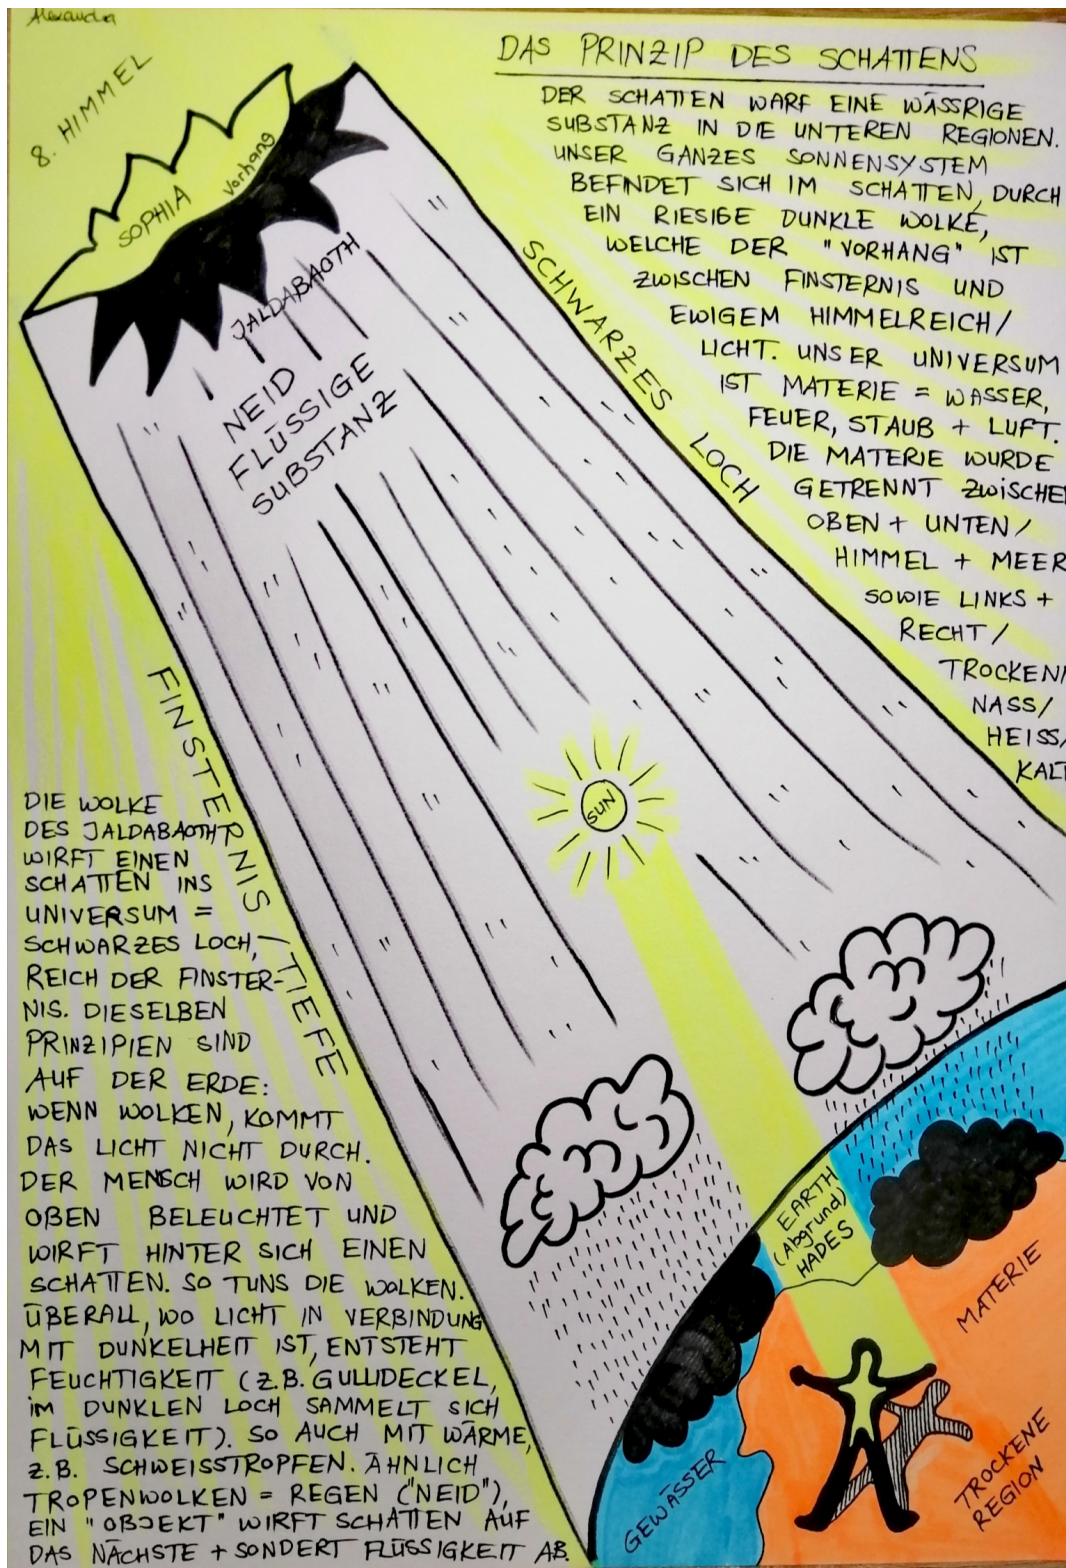 Alexandra
8. HIMMEL
SOPHIA
Vorhang
JALDABAOTH
NEID
FLÜSSIGE
SUBSTANZ
DAS PRINZIP DES SCHATTENS
DER SCHATTEN WARF EINE WÄSSRIGE
SUBSTANZ IN DIE UNTEREN REGIONEN.
UNSER GANZES SONNENSYSTEM
BEFINDET SICH IM SCHATTEN, DURCH
EIN RIESIGE DUNKLE WOLKE,
WELCHE DER "VORHANG" IST
ZWISCHEN FINSTERNIS UND
EWIGEM HIMMELREICH/
LICHT. UNSER UNIVERSUM
IST MATERIE = WASSER,
FEUER, STAUB + LUFT.
DIE MATERIE WURDE
GETRENNT ZWISCHEN
OBEN + UNTEN/
HIMMEL + MEER
SOWIE LINKS +
RECHT/
TROCKEN/
NASS/
HEISS/
KALT
SCHWARZES LOCH
FINSTERNIS/TIEFE
SUN
DIE WOLKE
DES JALDABAOTH
WIRFT EINEN
SCHATTEN INS
UNIVERSUM =
SCHWARZES LOCH,
REICH DER FINSTER-
NIS. DIESELBEN
PRINZIPIEN SIND
AUF DER ERDE:
WENN WOLKEN, KOMMT
DAS LICHT NICHT DURCH.
DER MENSCH WIRD VON
OBEN BELEUCHTET UND
WIRFT HINTER SICH EINEN
SCHATTEN. SO TUNS DIE WOLKEN.
ÜBERALL, WO LICHT IN VERBINDUNG
MIT DUNKELHEIT IST, ENTSTEHT
FEUCHTIGKEIT (Z.B. GULLIDECKEL,
IM DUNKLEN LOCH SAMMELT SICH
FLÜSSIGKEIT). SO AUCH MIT WÄRME,
Z.B. SCHWEISSTROPFEN. ÄHNLICH
TROPENWOLKEN = REGEN ("NEID"),
EIN "OBJEKT" WIRFT SCHATTEN AUF
DAS NÄCHSTE + SONDERT FLÜSSIGKEIT AB.
EARTH
(Abgrund)
HADES
MATERIE
TROCKENE
REGION
GEWÄSSER